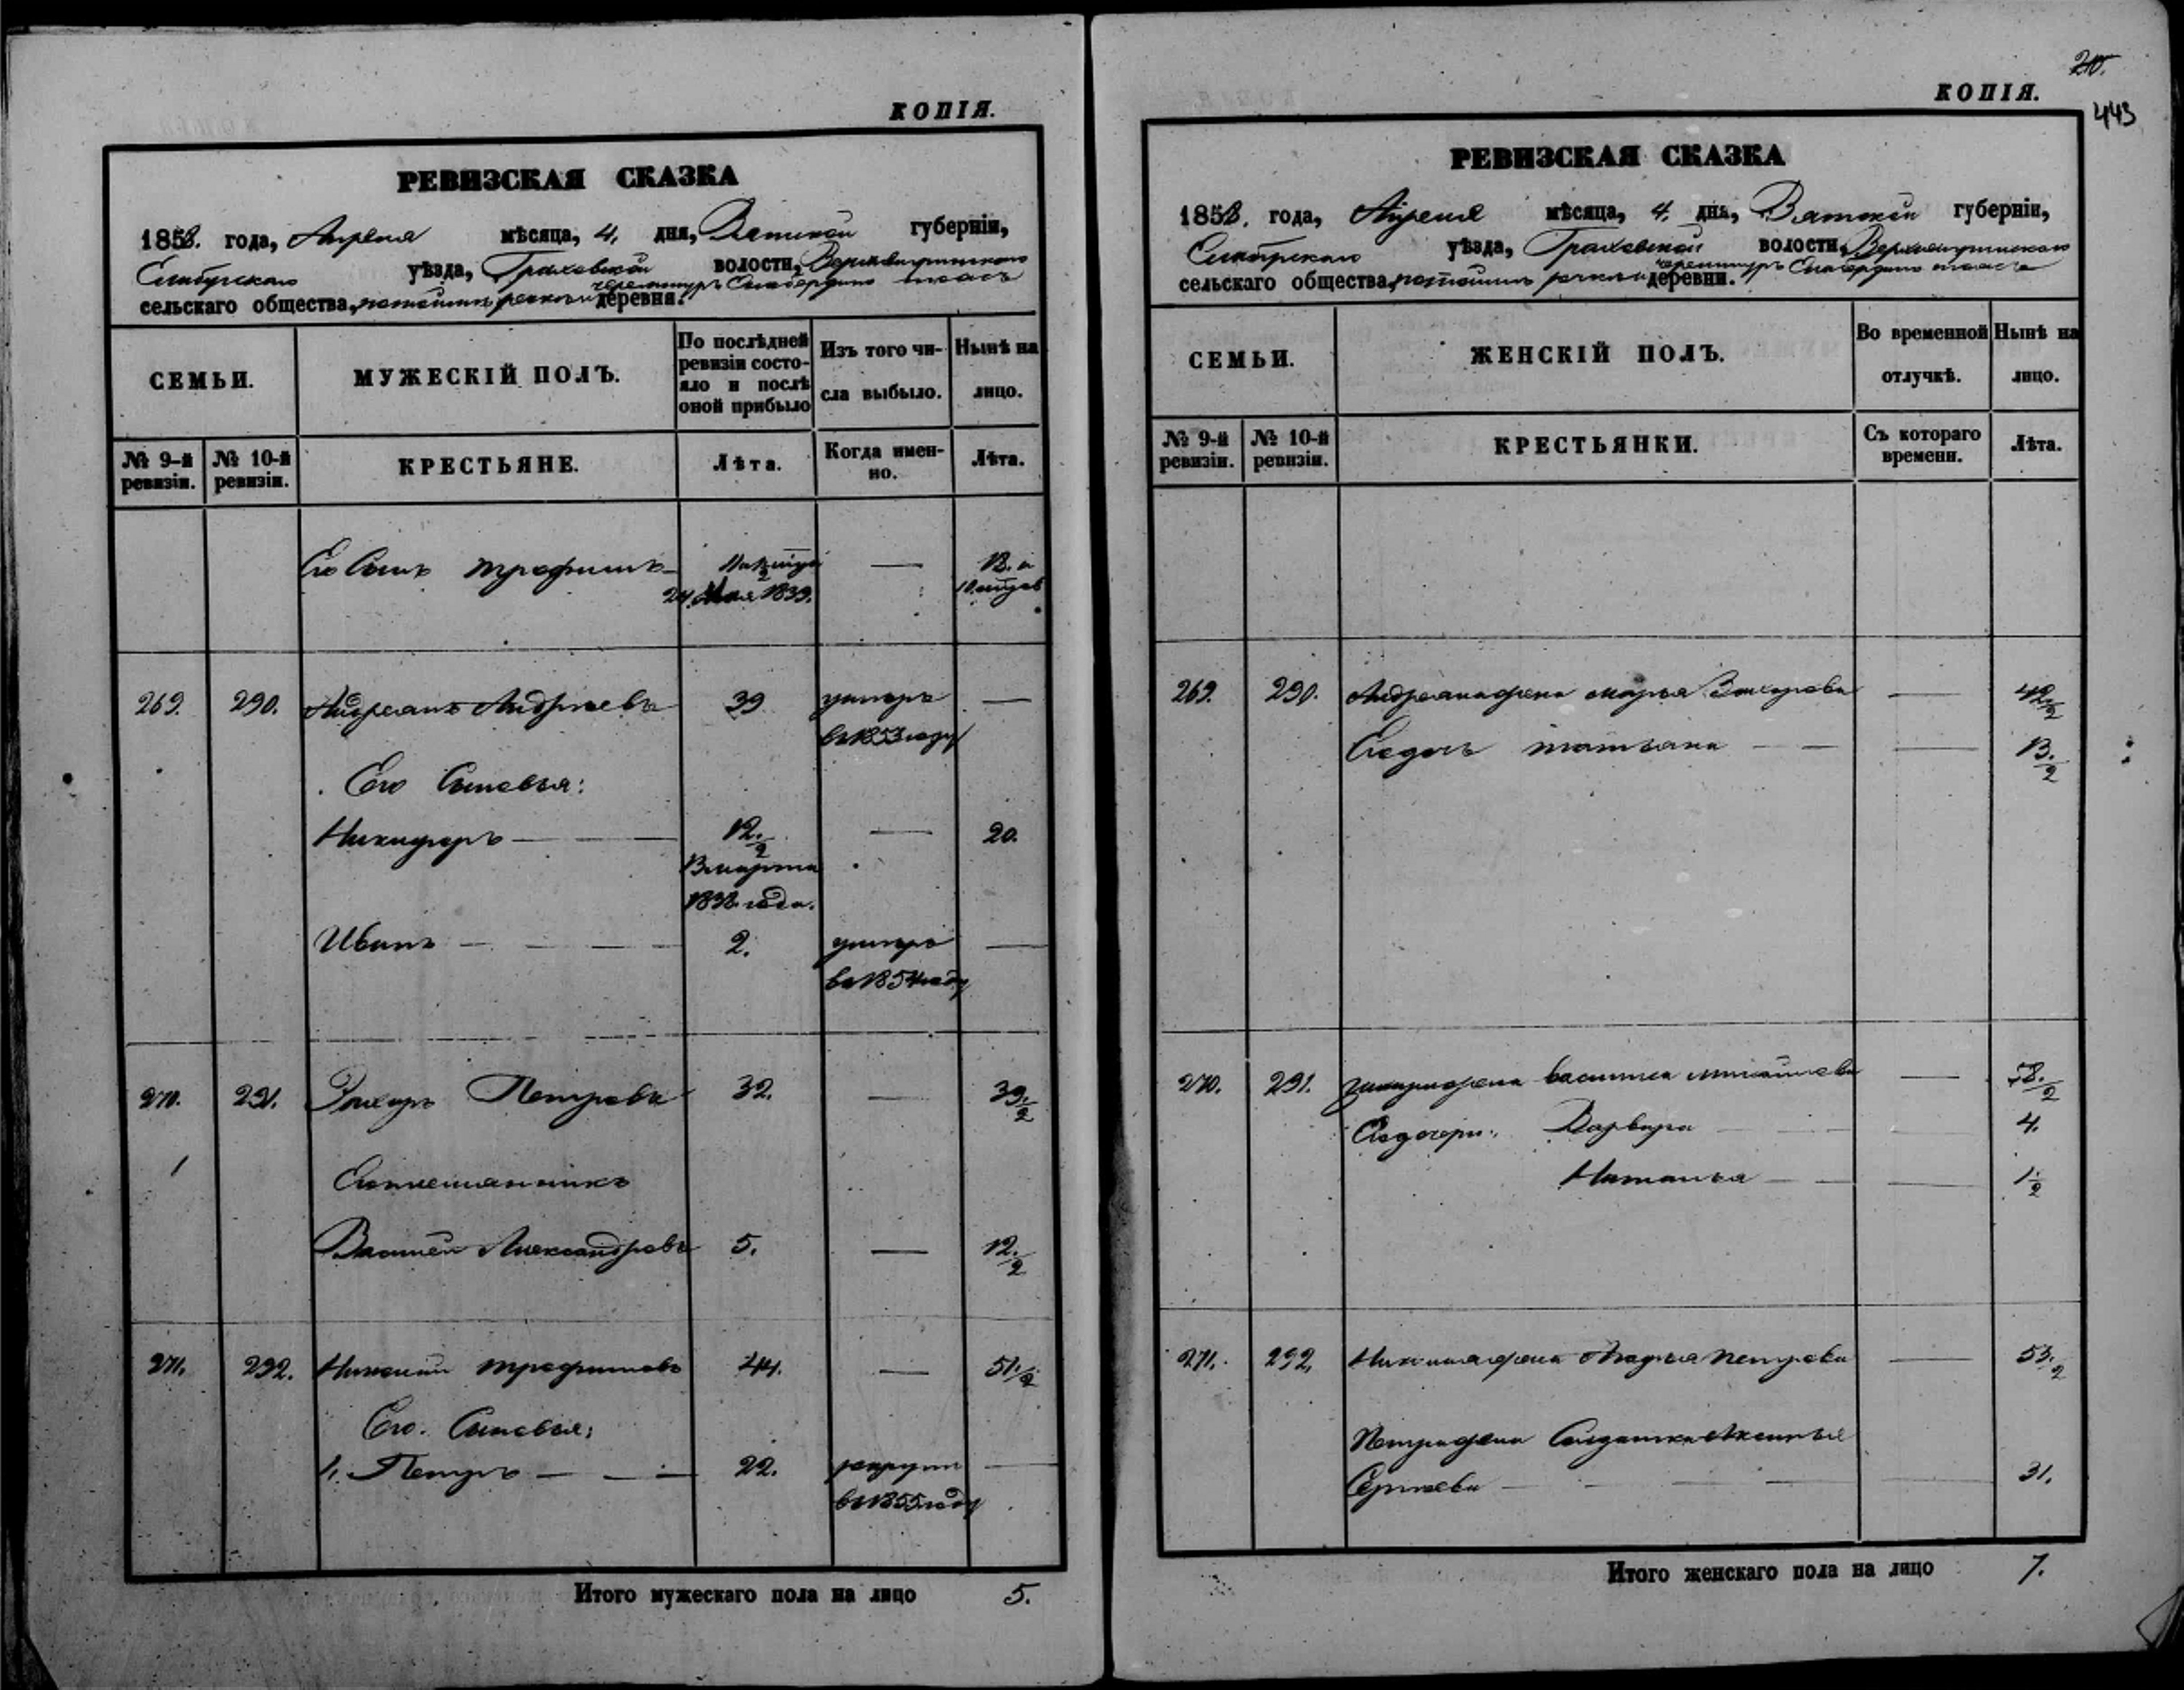 КОПІЯ.
РЕВИЗСКАЯ СКАЗКА
1858. года, Апреля мѣсяца, 4. дня, Вятской губерніи,
Елабугскаго уѣзда, Граховской волости,
сельскаго общества, деревня.
СЕМЬИ.
МУЖЕСКІЙ ПОЛЪ.
По послѣдней ревизіи состояло и послѣ оной прибыло
Изъ того числа выбыло.
Нынѣ на лицо.
№ 9-й ревизіи.
№ 10-й ревизіи.
КРЕСТЬЯНЕ.
Лѣта.
Когда именно.
Лѣта.
Его Сынъ трофимъ —
24 Мая 1839.
269. 290. Андреянъ Андреевъ 39 умеръ —
въ 1853 году
Его Сыновья:
Никифоръ — 12.½ — 20.
Змарта
1838. года.
Иванъ — 2. умеръ —
въ 1854 году
270. 291. Петровъ 32. — 39.½
Его племянникъ
Василей Александровъ 5. — 12.½
271. 292. Николай трофимовъ 44. — 51.½
Его. Сыновья:
1. Петръ — 22. рекрутъ —
въ 1855 году
Итого мужескаго пола на лицо 5.
210.
443
КОПІЯ.
РЕВИЗСКАЯ СКАЗКА
1858. года, Апреля мѣсяца, 4. дня, Вятской губерніи,
Елабугскаго уѣзда, Граховской волости,
сельскаго общества, деревни.
СЕМЬИ.
ЖЕНСКІЙ ПОЛЪ.
Во временной отлучкѣ.
Нынѣ на лицо.
№ 9-й ревизіи.
№ 10-й ревизіи.
КРЕСТЬЯНКИ.
Съ котораго времени.
Лѣта.
269. 290. Андреяна жена марья Захарова — 42½
Ея дочь татьяна — 13.½
270. 291. жена василиса михайлова — ½
Ея дочери: Варвара — 4.
Наталья — 1½
271. 292. Николая жена Марья петрова — 53.½
Петра жена Солдатка Аксинья
Сергѣева — 31.
Итого женскаго пола на лицо 7.